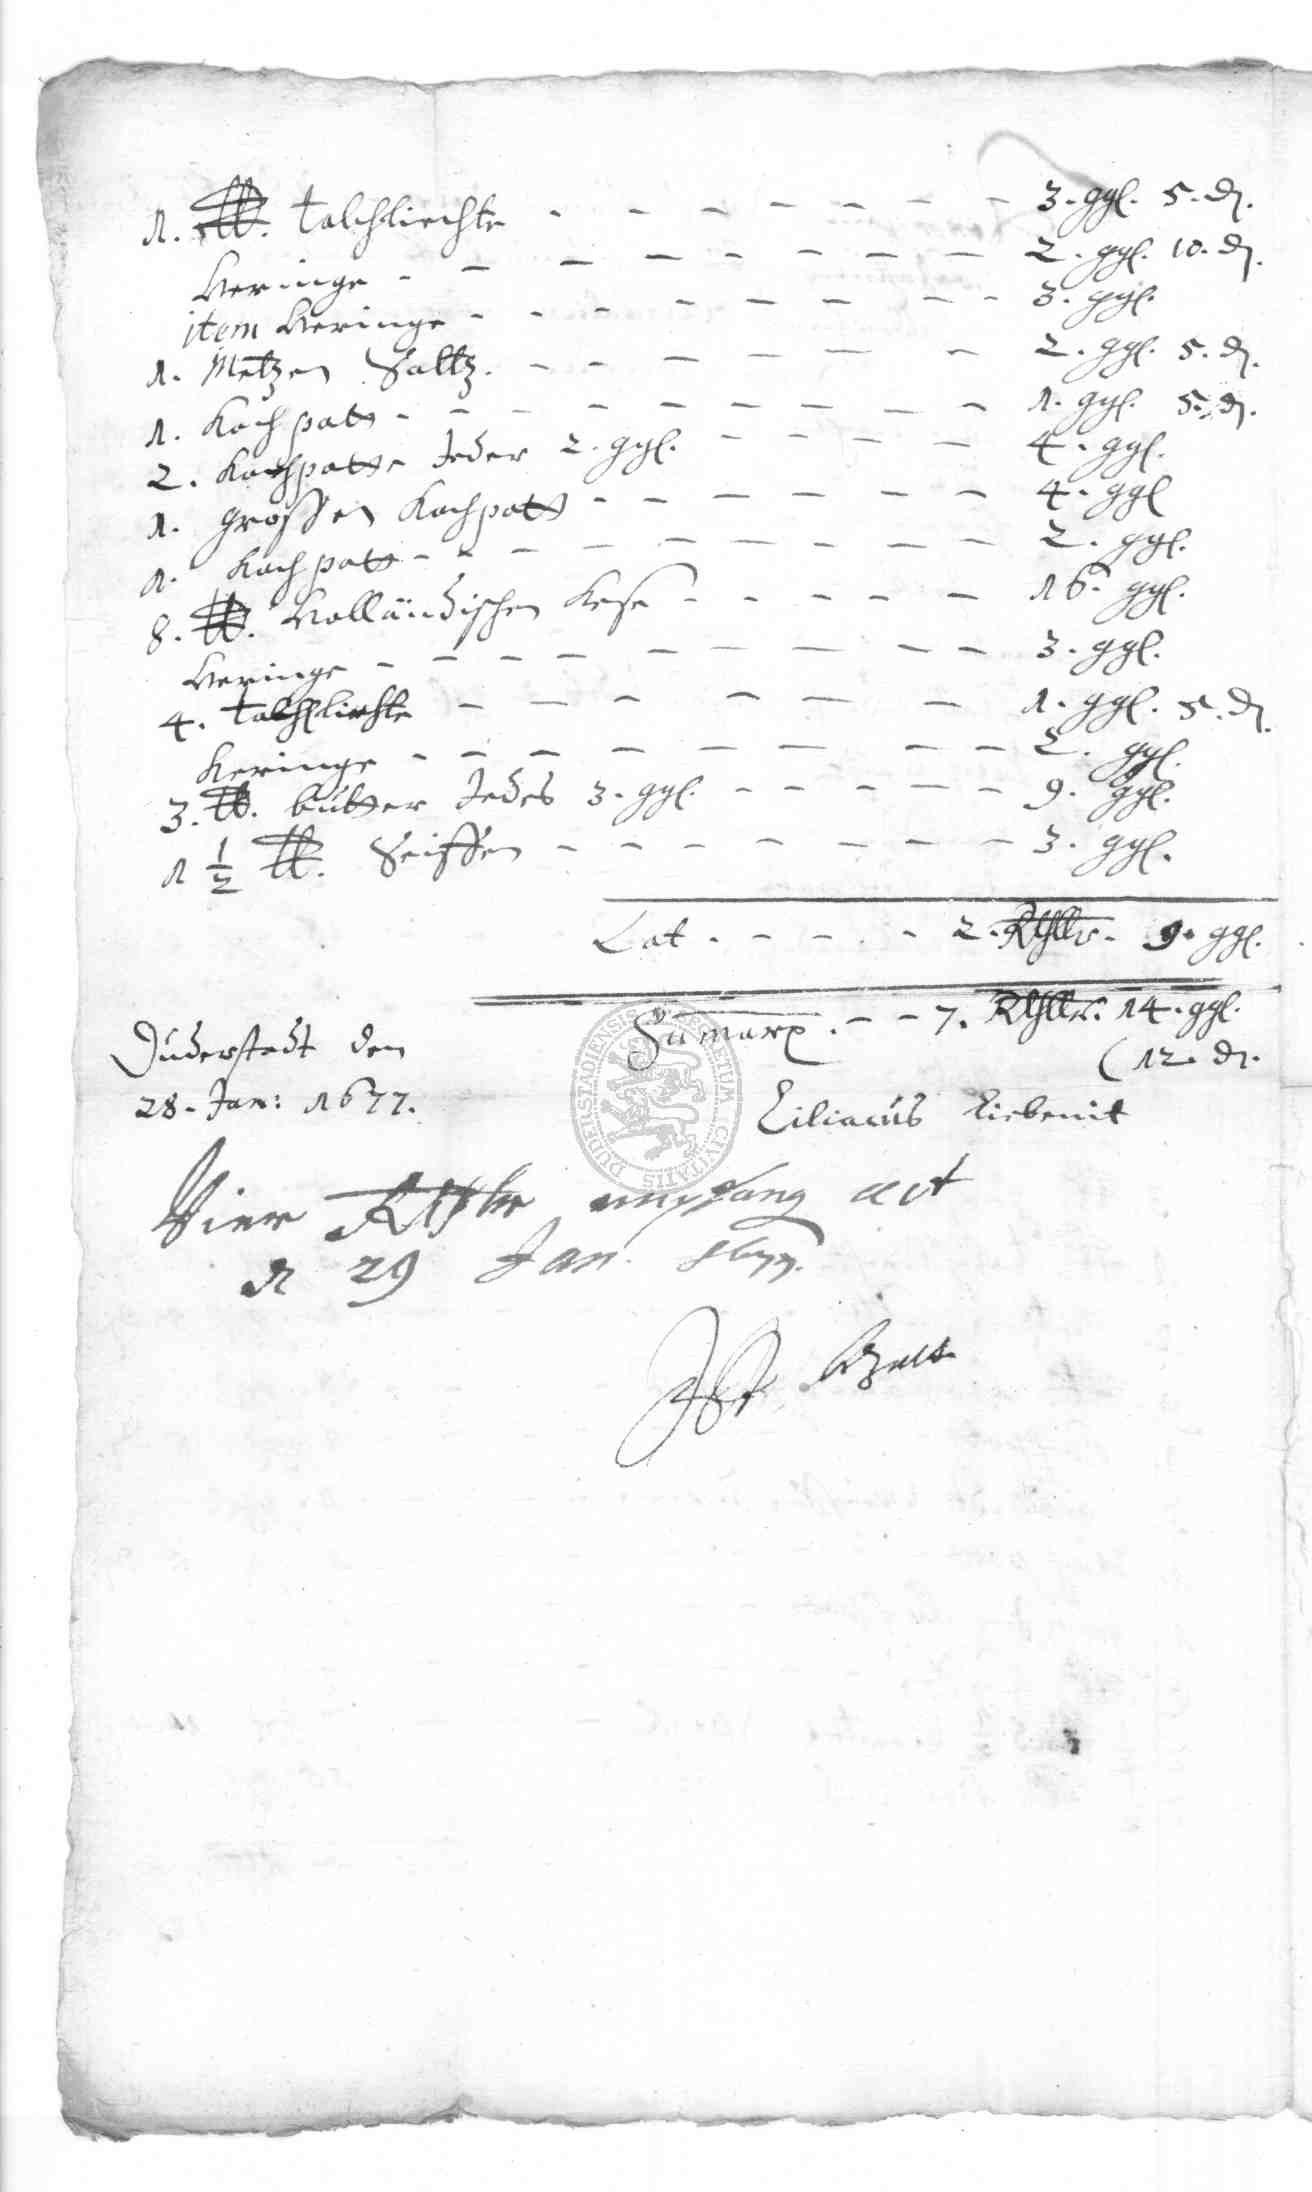 1. ℔. talchliechte - - - - - - - - 3. ggl. 5. d.
Heringe - - - - - - - - 2. ggl. 10. d.
item Heringe - - - - - - - - 3. ggl.
1. Metzen Saltz. - - - - - - - 2. ggl. 5. d.
1. Kochpott - - - - - - - - - 1. ggl. 5. d.
2. Kochpotte Jeder 2. ggl. - - - - 4. ggl.
1. grossen Kochpott - - - - - - 4. ggl
1. Kochpott - - - - - - - - - 2. ggl.
8. ℔. Holländischen Kese - - - - - 16. ggl.
Heringe - - - - - - - - - 3. ggl.
4. talchliechte - - - - - - - 1. ggl. 5. d.
Heringe - - - - - - - - - 2. ggl.
3. ℔. butter Jedes 3. ggl. - - - - - 9. ggl.
1 1/2 ℔. Seiffen - - - - - - - - 3. ggl.
Lat. - - - - 2. Rthllr. 9. ggl.
Summarx. - - 7. Rthllr. 14. ggl.
(12. d.
Duderstadt den
28. Jan: 1677.
Ciliacus Liebenit
Vier Rthlr empfang
d 29 Jan. 1677.
DUDERSTADIENSIS SECRETUM CIVITATIS